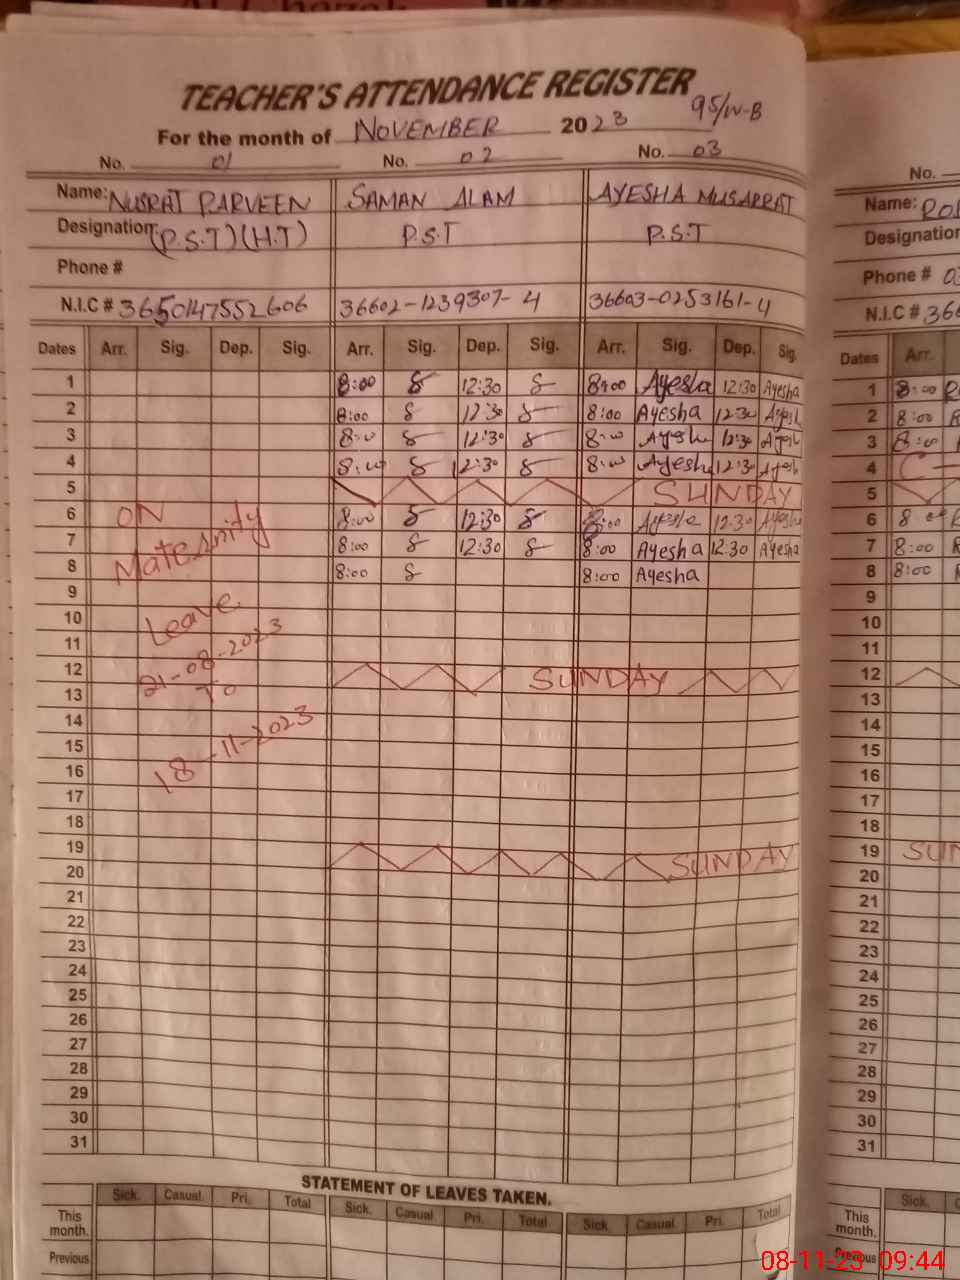 TEACHER'S ATTENDANCE REGISTER
95/W-B
For the month of NOVEMBER 2023
No. 01 No. 02 No. 03
Name: NUSRAT PARVEEN SAMAN ALAM AYESHA MUSARRAT
Designation: (P.S.T)(H.T) P.S.T P.S.T
Phone #
N.I.C # 3650147552606 36602-1239307-4 36603-0253161-4
Dates Arr. Sig. Dep. Sig. Arr. Sig. Dep. Sig. Arr. Sig. Dep. Sig.
1 8:00 S 12:30 S 8:00 Ayesha 12:30 Ayesha
2 8:00 S 12:30 S 8:00 Ayesha 12:30 Ayesh
3 8:00 S 12:30 S 8:00 Ayesh 12:30 Ayesh
4 8:00 S 12:30 S 8:00 Ayesha 12:30 Ayesh
5 SUNDAY
6 ON 8:00 S 12:30 S 8:00 Ayesha 12:30 Ayesha
7 Maternity 8:00 S 12:30 S 8:00 Ayesha 12:30 Ayesha
8 8:00 S 8:00 Ayesha
9
10 Leave
11
12 21-08-2023 SUNDAY
13 To
14
15 18-11-2023
16
17
18
19 SUNDAY
20
21
22
23
24
25
26
27
28
29
30
31
STATEMENT OF LEAVES TAKEN.
Sick. Casual. Pri. Total Sick. Casual Pri. Total Sick Casual. Pri. Total
This month.
Previous
No.
Name:
Designation
Phone # 03
N.I.C # 366
Dates Arr.
1 8:00
2 8:00
3 8:00
4
5
6 8:00
7 8:00
8 8:00
9
10
11
12
13
14
15
16
17
18
19 SUN
20
21
22
23
24
25
26
27
28
29
30
31
Sick.
This month.
Previous
08-11-23 09:44